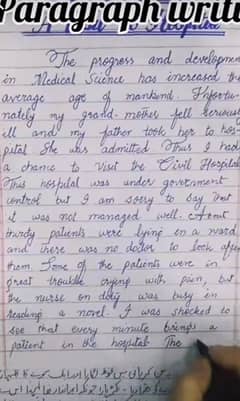 Paragraph writi
A Visit to Hospital
The progress and developmen
in Medical Science has increased the
average age of mankind. Unfortu-
nately my grand-mother fell serious
ill and my father took her to hos-
pital She was admitted Thus I had
a chance to visit the Civil Hospital
This hospital was under government
control but I am sorry to say that
it was not managed well. About
thirty patients were lying in a ward
and there was no doctor to look after
them. Some of the patients were in
great trouble crying with pain, but
the nurse on duty was busy in
reading a novel. I was shocked to
see that every minute brings a
patient in the hospital The